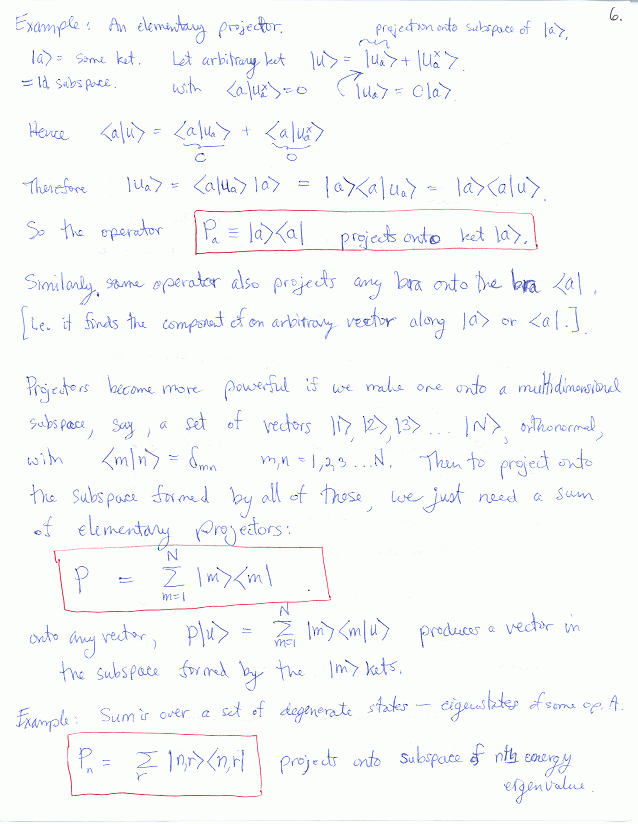 6.
Example: An elementary projector. projection onto subspace of |a⟩.
|a⟩ = some ket. Let arbitrary ket |u⟩ = |uₐ⟩ + |uₐˣ⟩.
= 1d subspace. with ⟨a|uₐˣ⟩ = 0 |uₐ⟩ = C|a⟩.
Hence ⟨a|u⟩ = ⟨a|uₐ⟩ + ⟨a|uₐˣ⟩
C 0
Therefore |uₐ⟩ = ⟨a|uₐ⟩|a⟩ = |a⟩⟨a|uₐ⟩ = |a⟩⟨a|u⟩.
So the operator Pₐ ≡ |a⟩⟨a| projects onto ket |a⟩.
Similarly, same operator also projects any bra onto the bra ⟨a|.
[i.e. it finds the component of an arbitrary vector along |a⟩ or ⟨a|.]
Projectors become more powerful if we make one onto a multidimensional
subspace, say, a set of vectors |1⟩, |2⟩, |3⟩ ... |N⟩, orthonormal,
with ⟨m|n⟩ = δₘₙ m,n = 1,2,3 ... N. Then to project onto
the subspace formed by all of these, we just need a sum
of elementary projectors:
N
P = Σ |m⟩⟨m| .
m=1
N
onto any vector, P|u⟩ = Σ |m⟩⟨m|u⟩ produces a vector in
m=1
the subspace formed by the |m⟩ kets.
Example: Sum is over a set of degenerate states – eigenstates of some op. A.
Pₙ = Σ |n,r⟩⟨n,r| projects onto subspace of nth energy
r
eigenvalue.